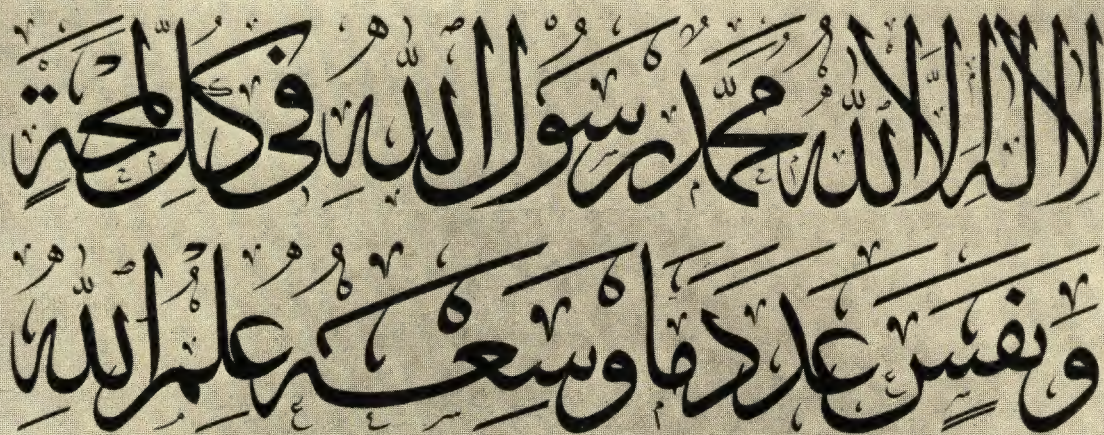 لا اله الا الله محمد رسول الله في كل لمحة
ونفس عدد ما وسعه علم الله